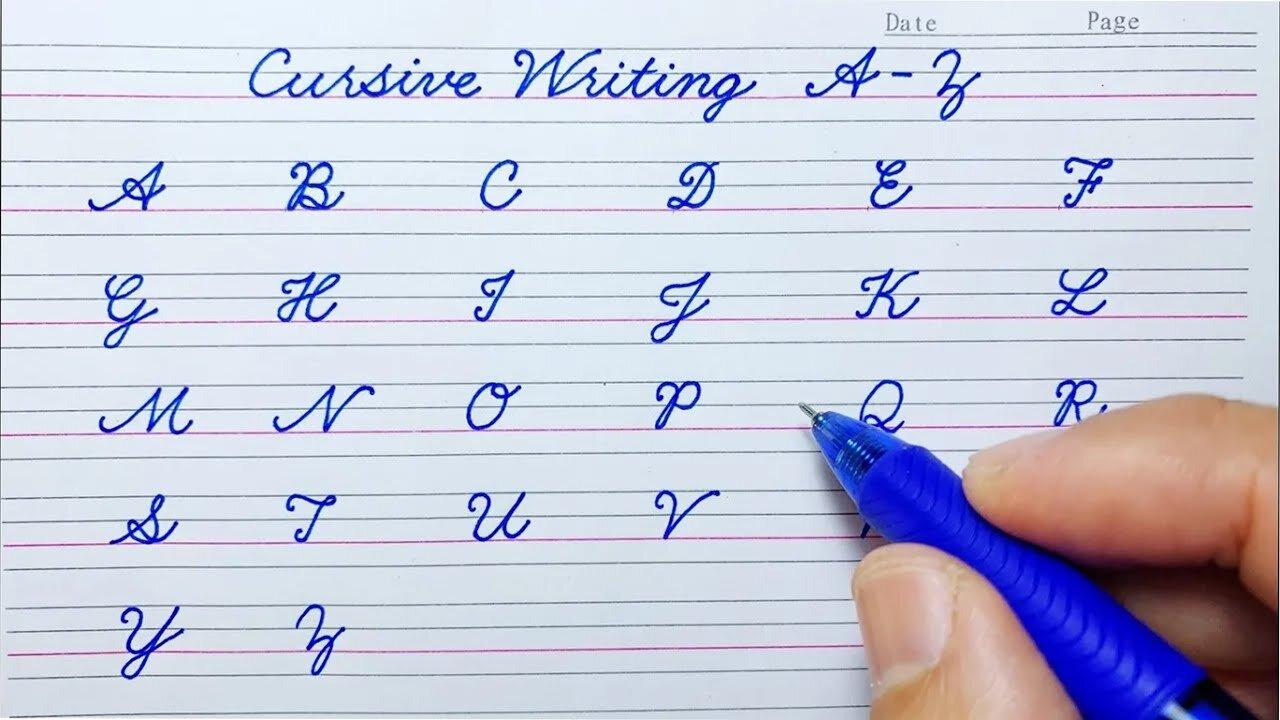 Date Page
Cursive Writing A-Z
A B C D E F
G H I J K L
M N O P Q R
S T U V
Y Z